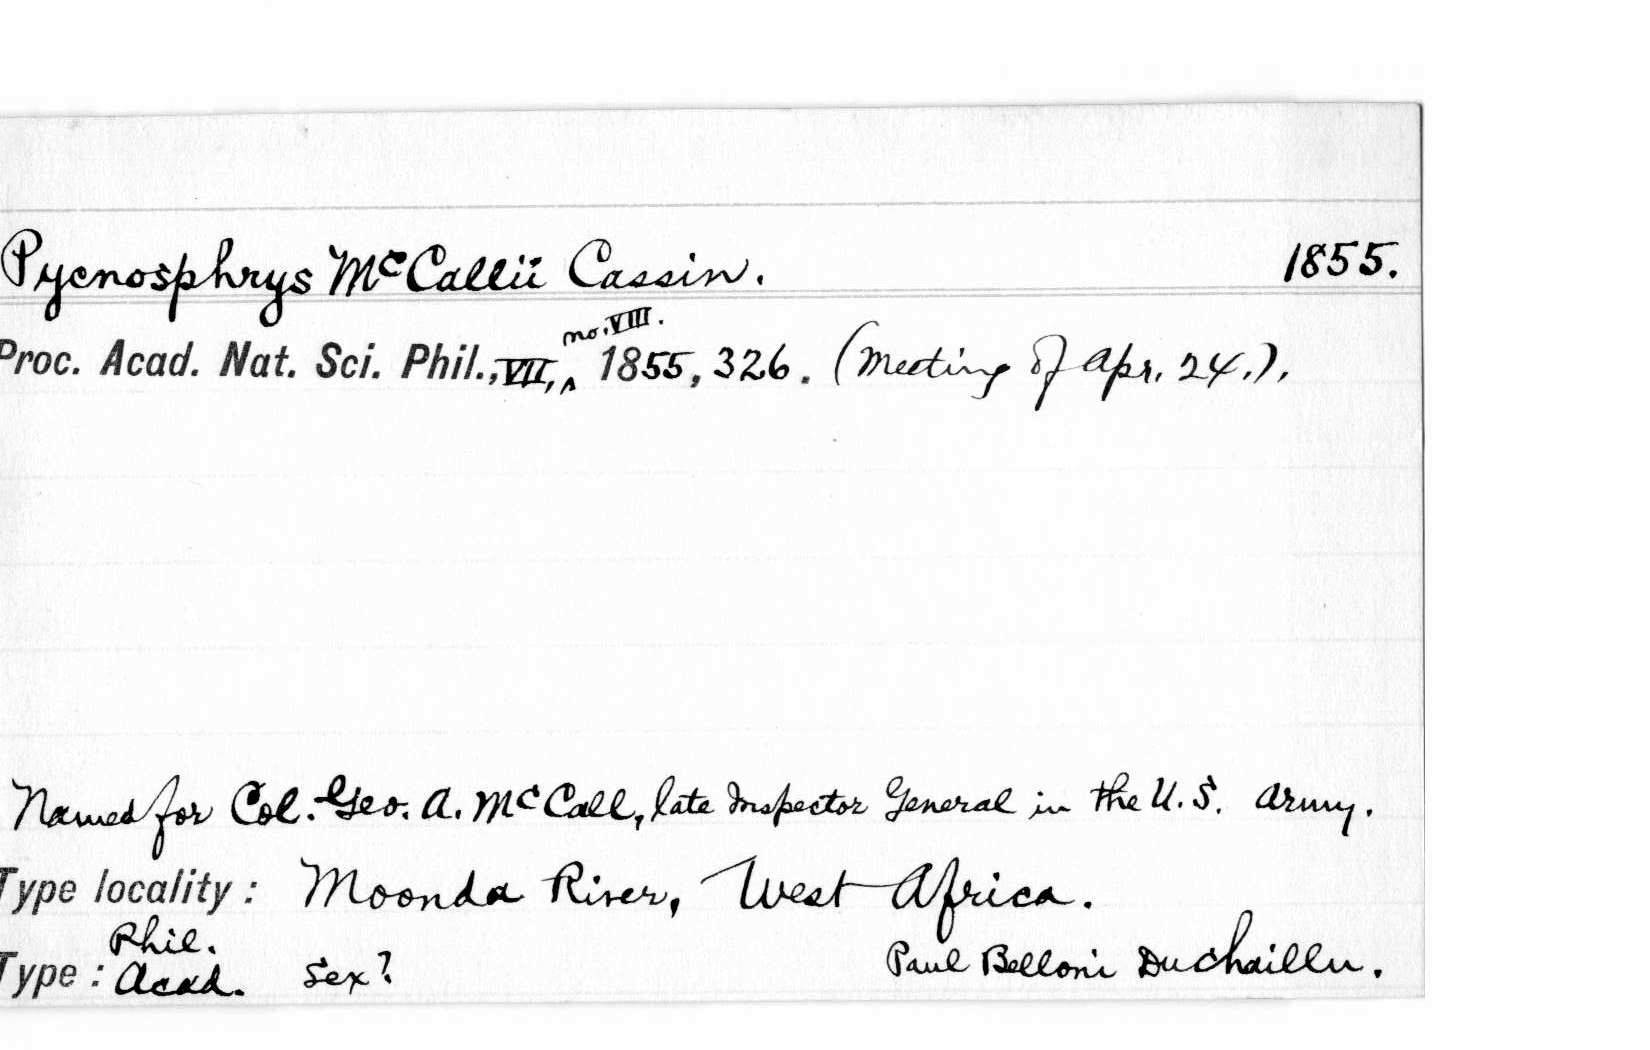 Pycnosphrys McCallii Cassin. 1855.
no. VIII.
Proc. Acad. Nat. Sci. Phil., VII, ^ 1855, 326. (Meeting of Apr. 24.).
Named for Col. Geo. A. McCall, late Inspector General in the U. S. Army.
Type locality: Moonda River, West Africa.
Phil.
Type: Acad. Sex? Paul Belloni DuChaillu.